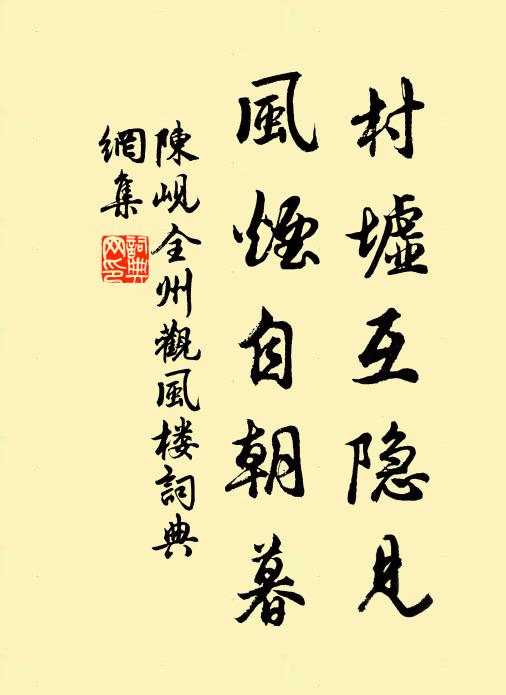 村墟互隐見
風煙自朝暮
陳峴全州觀風楼詞典
網集
詞典
网印